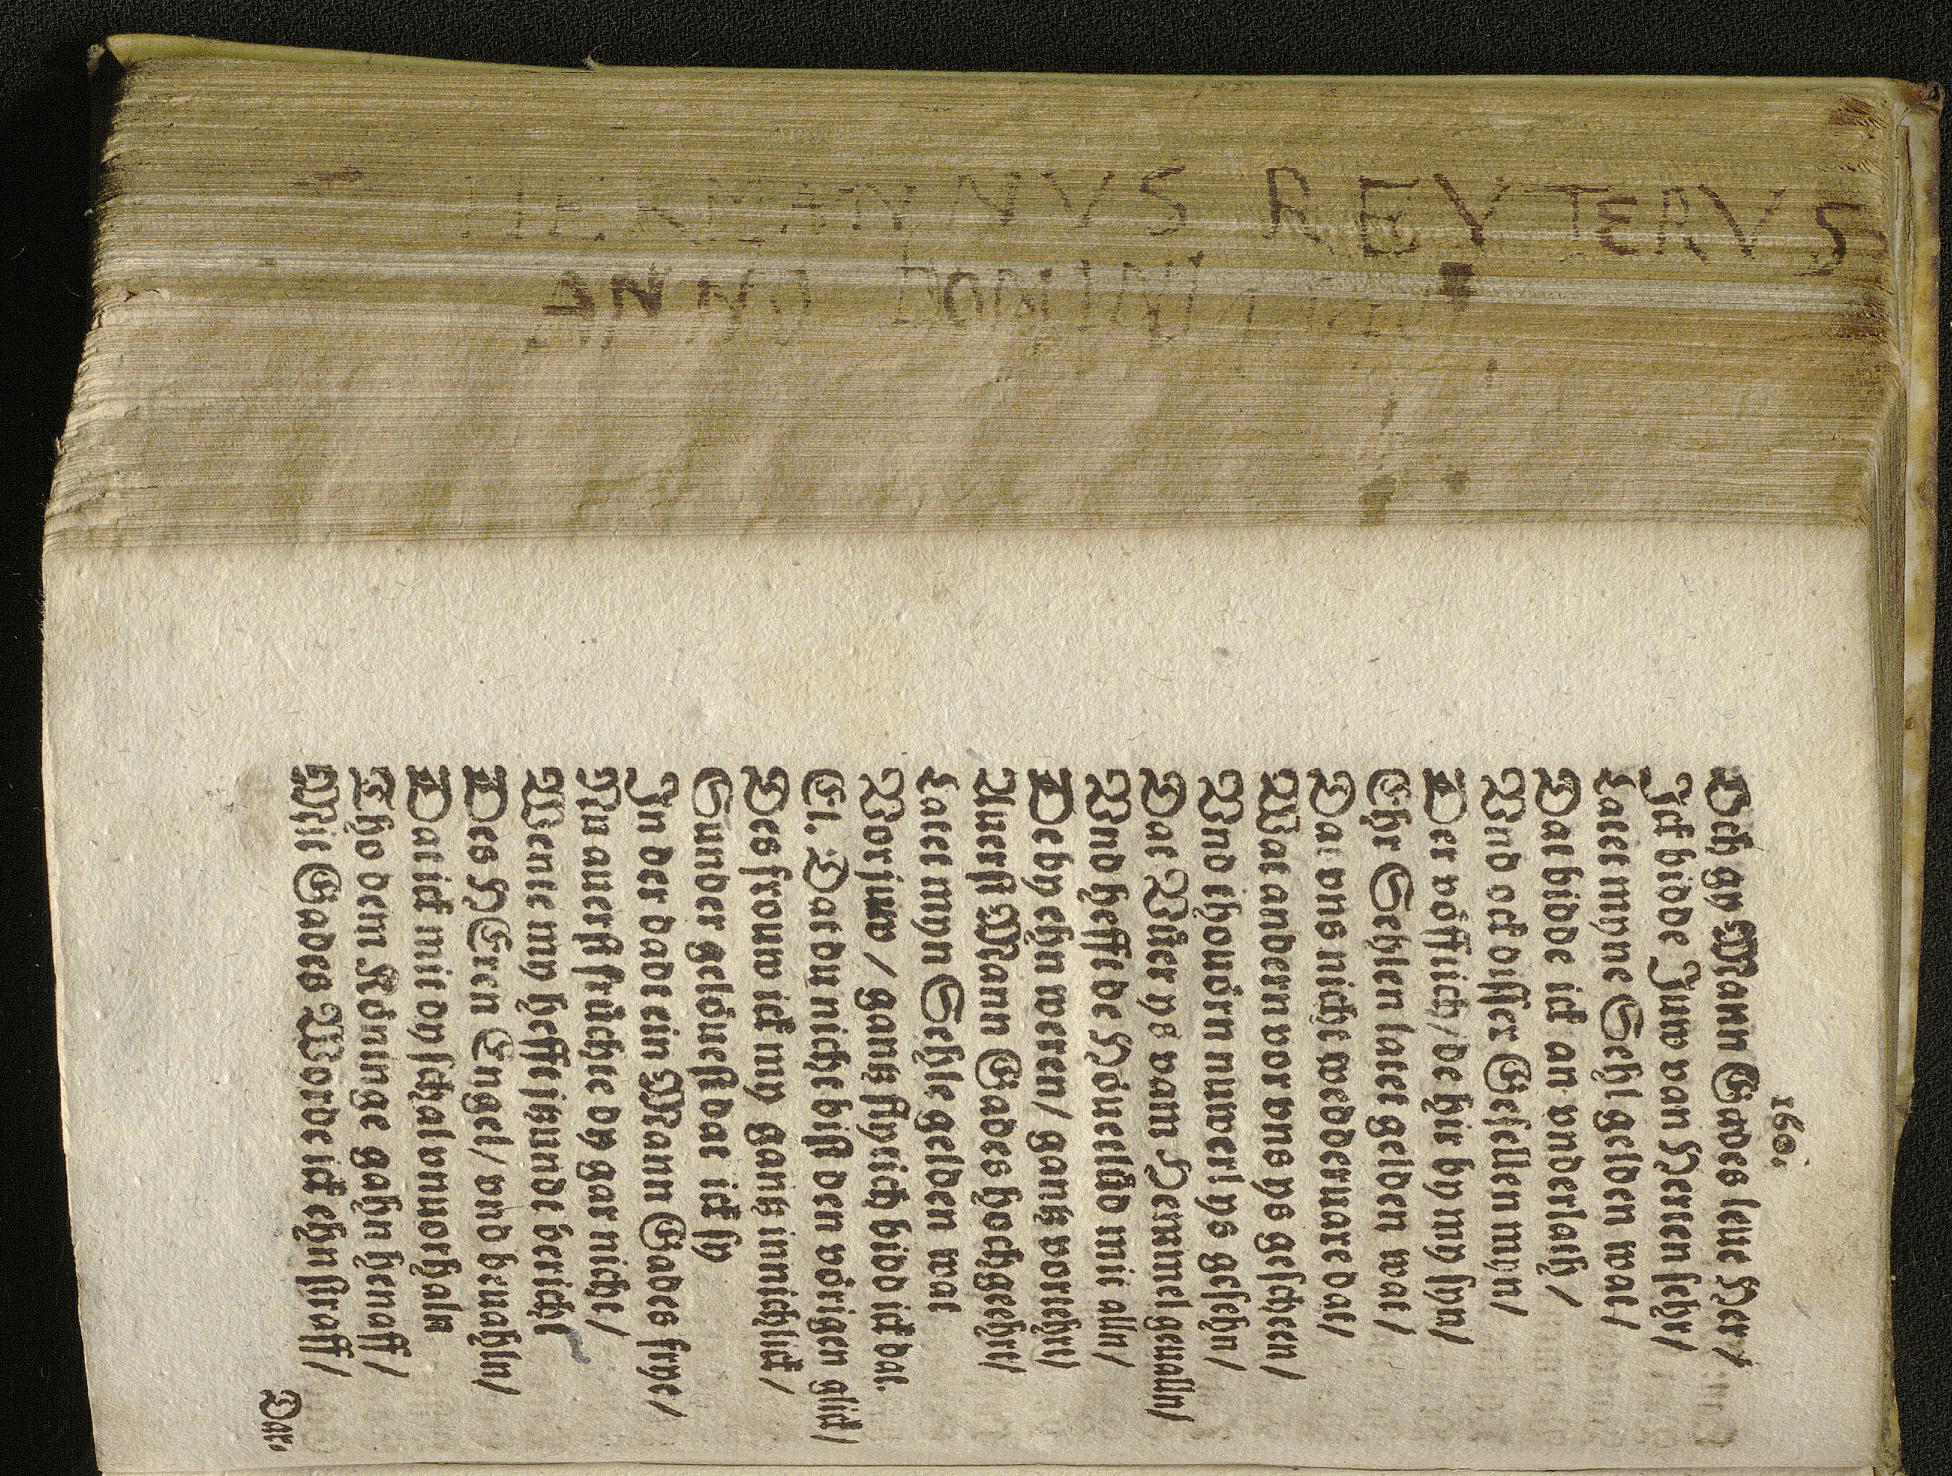 HERMANNVS REYTERVS
ANNO DOMINI
160.
Och gy Mann Gades leue Her/
Ick bidde Juw van Herten sehr/
Latet myne Sehl gelden wat/
Dat bidde ick an vnderlath/
Vnd ock disser Gesellen myn/
Der vöfftich/ de hir by my syn/
Ehr Sehlen latet gelden wat/
Dat vns nicht wedderuare dat/
Wat andern vor vns ys gescheen/
Vnd thouörn nuwerlys gesehn/
Dat Vüer ys vam Hemmel geualln/
Vnd hefft de Höuetlüd mit alln/
De by ehn weren/ gantz vortehrt/
Auerst Mann Gades hochgeehrt/
Latet myn Sehle gelden wat
Vor juw/ gantz flytich bidd ick dat.
El. Dat du nicht bist den vörigen glick/
Des frouw ick my gantz innichlick/
Sunder gelöuest dat ick sy
In der dadt ein Mann Gades frye/
Nu auerst früchte dy gar nicht/
Wente my hefft itzunde bericht
Des HEren Engel/ vnd beuahln/
Dat ick mit dy schal vnuorhaln
Tho dem Köninge gahn henaff/
Mit Gades Worde ick ehn straff/
Dar-